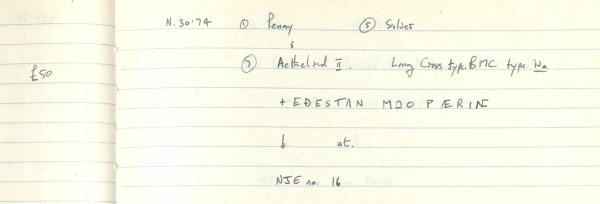 N.30.74 ① Penny ⑤ Silver
£50
⑦ Aethelred II. Long Cross type. BMC type iva
+ EDESTAN MΩO PÆRINE
↓ wt.
NJE no. 16